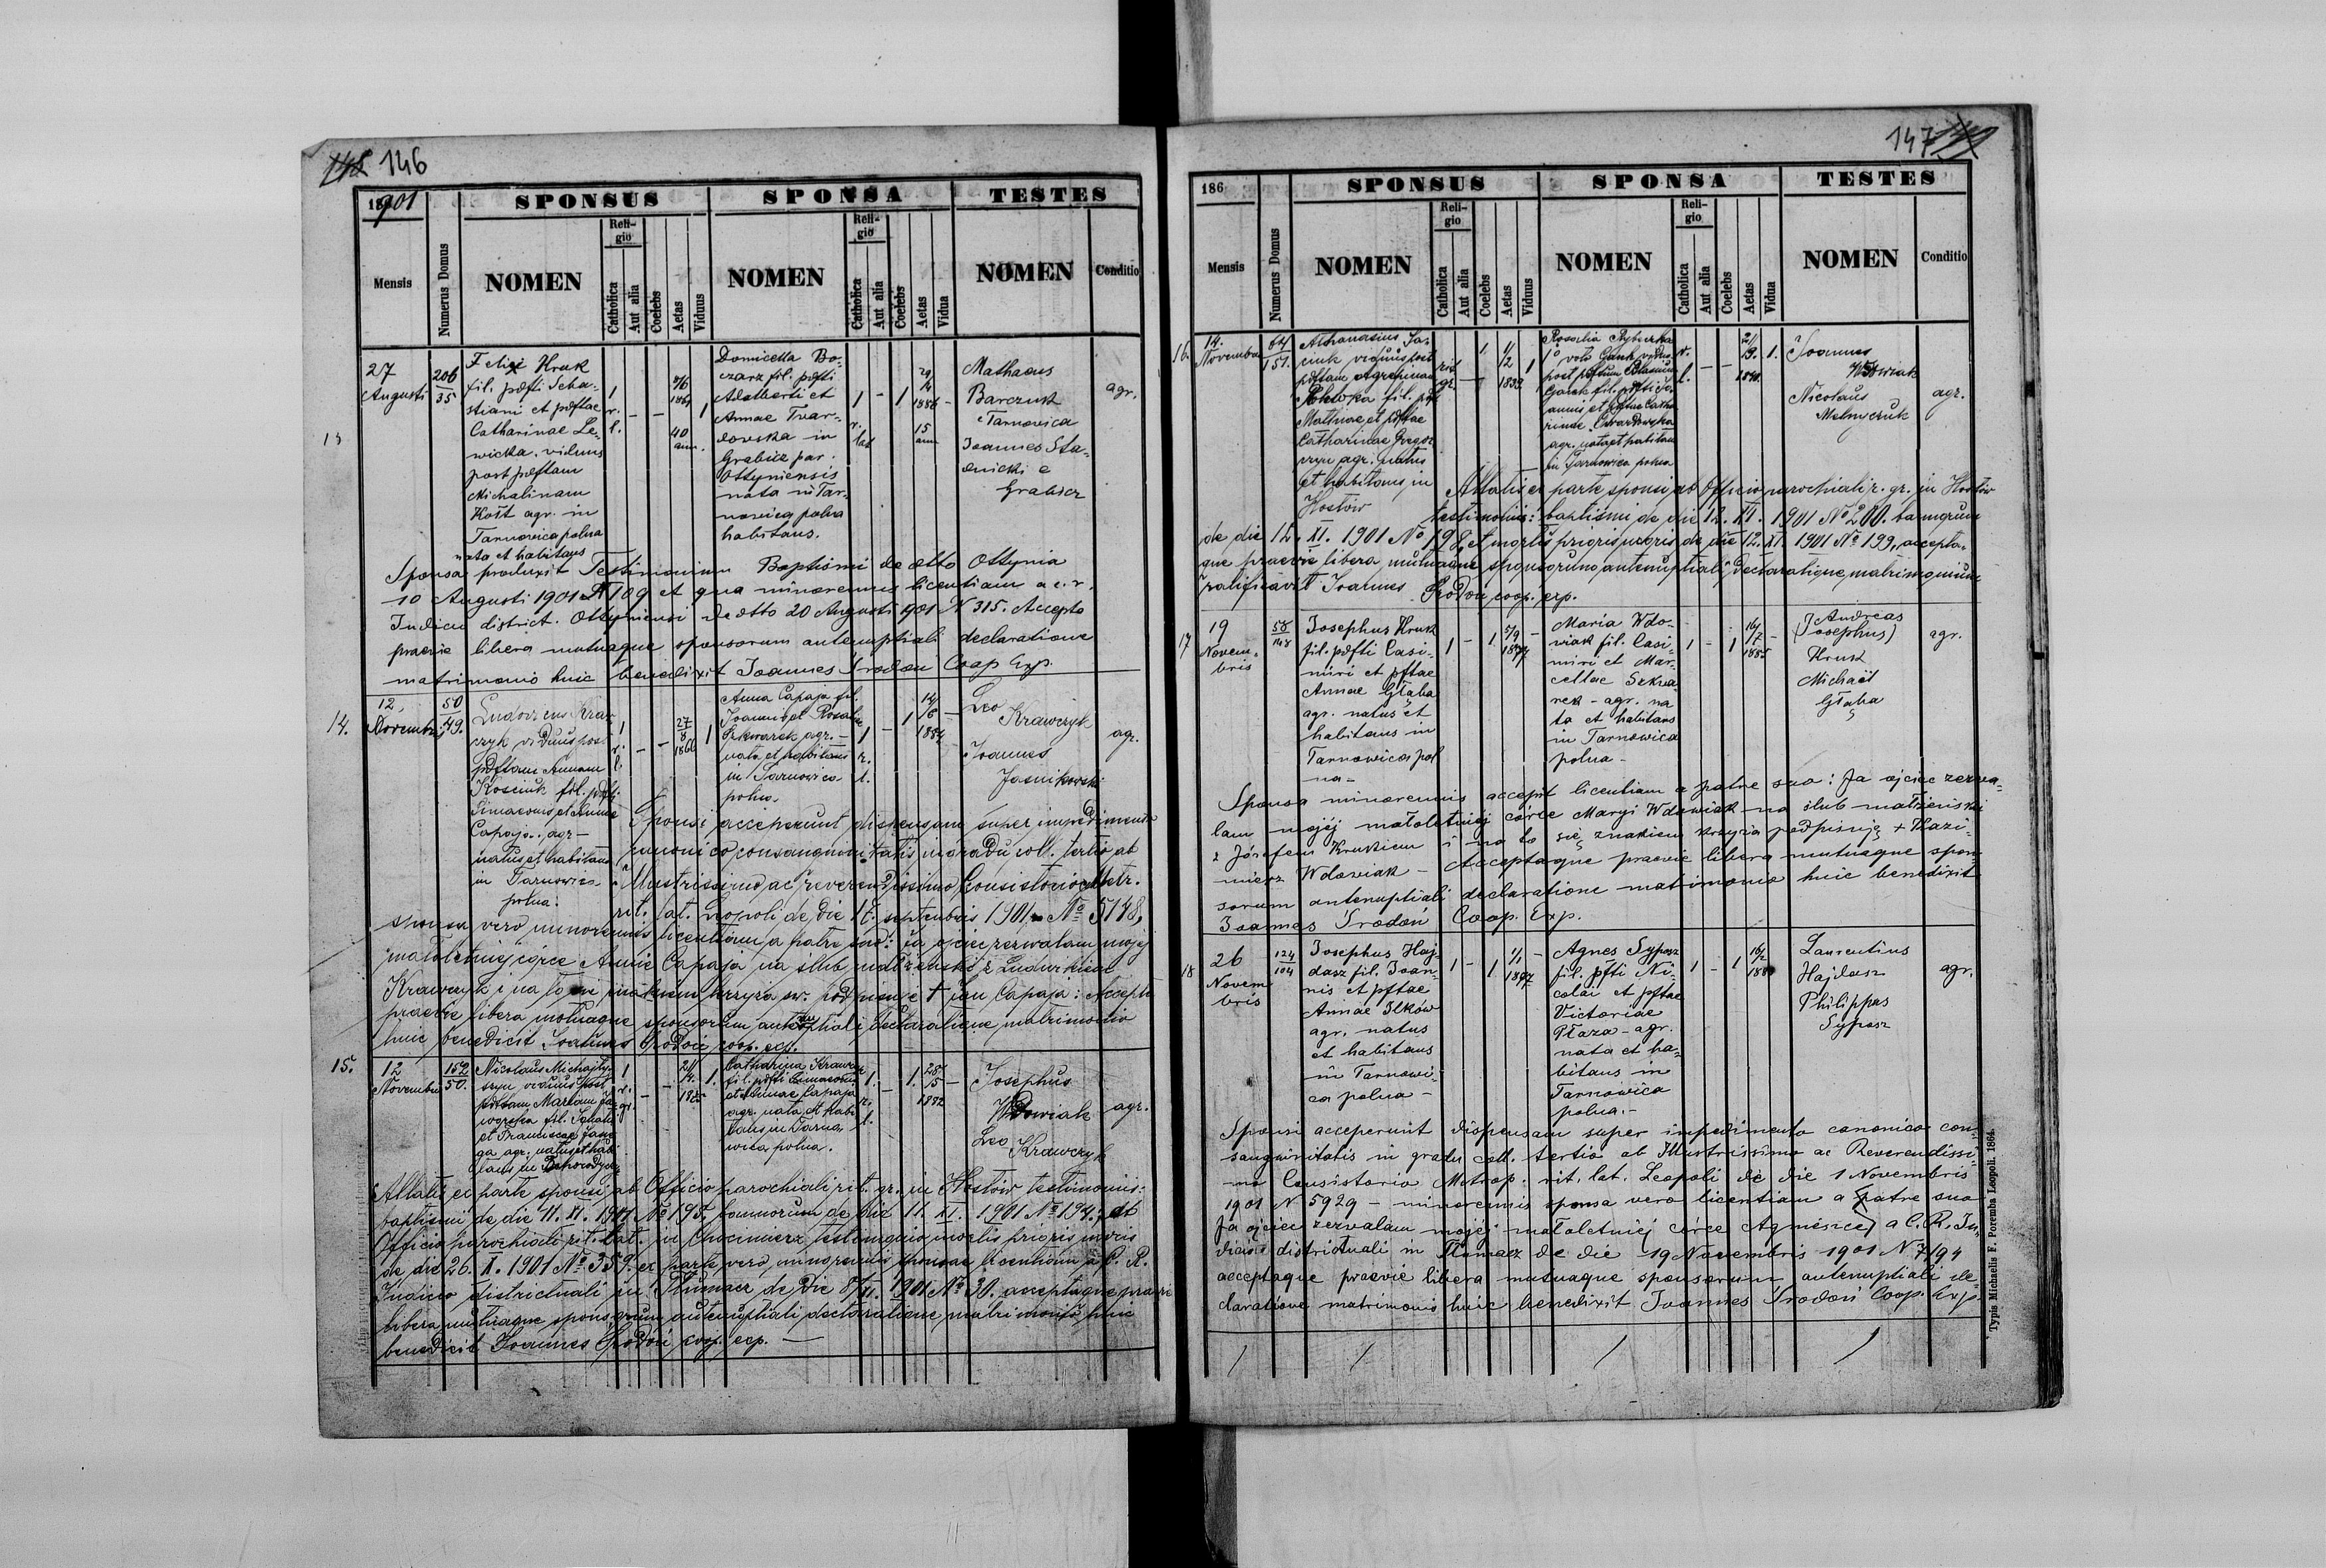 146
1901
SPONSUS SPONSA TESTES
Mensis
Numerus Domus
NOMEN
Reli-
gio
Catholica
Aut alia
Coelebs
Aetas
Viduus
NOMEN
Reli-
gio
Catholica
Aut alia
Coelebs
Aetas
Vidua
NOMEN
Conditio
13
27
Augusti
206
35
Felix Hruk
fil. pdfti Seba-
stiani et pdftae
Catharinae Le-
wicka, viduus
post pdftam
Michalinam
Kost agr. in
Tarnowica polna
nata et habitans
1
r.
l.
1861
40
ann.
1
Domicella Bo-
czarz fil. pdfti
Adalberti et
Annae Twar-
dowska in
Grabicz par.
Ottyniensis
nata in Tar-
nowica polna
habitans.
1
r.
lat
1
29
1886
15
ann
Mathaeus
Barczuk
Tarnowica
Joannes Sta-
dnicki e
Grabicz
agr.
Sponsa produxit Testimonium Baptismi de dtto Ottynia
10 Augusti 1901 N 109 et qua minorennis licentiam a c. r.
Judicii district. Ottyniensi de dtto 20 Augusti 1901 N 315. Accepta
praevie libera mutuaque sponsorum antenuptiali declaratione
matrimonio huic benedixit Joannes Srodoń Coop Exp.
14.
12
Novembr.
50
49.
Ludovicus Kraw-
czyk viduus post
pdftam Annam
Kosciuk fil. pdfti
Simaeonis et Annae
Capaja. agr -
natus et habitans
in Tarnowica
polna.
1
r.
l.
27
8
1866
1
Anna Capaja fil.
Joannis et Rosaliae
Szkwarek agr. -
nata et habitans
in Tarnowica
polna.
1
r.
l.
1
14
6
1884
Leo
Krawczyk
Joannes
Jasnikowski
agr.
Sponsi acceperunt dispensam super impedimento
canonico consanguinitatis in gradu coll. tertio ab
Illustrissimo ac reverendissimo Consistorio Metr.
rit. lat. Leopoli de die 17. septembris 1901. No 5148,
sponsa vero minorennis licentiam a patre suo: Ja ojciec zezwalam mojej
małoletniej córce Annie Capaja na ślub małżeński z Ludwikiem
Krawczyk i na to się znakiem krzyża św. podpisuję † Jan Capaja: Accepta
praevie libera mutuaque sponsorum antenuptiali declaratione matrimonio
huic benedixit Joannes Srodoń coop. exp.
15.
12
Novembr
152
50.
Nicolaus Michajly-
szyn viduus post
pdftam Mariam
fil. Ignatii
et Franciscae
agr. natus et habi-
tans in
1
r.
gr.
21
1.
Catharina Krawczyk
fil. pdfti Simaeonis
et Annae Capaja
agr. nata et habi-
tans in Tarno-
wica polna.
1.
r.
l.
1.
25
5
1882
Josephus
Wdowiak
Leo
Krawczyk
agr.
Allatis ex parte sponsi ab Officio parochiali rit. gr. in Hostów testimoniis:
baptismi de die 11. XI. 1901 No 195, bannorum de die 11. XI. 1901 No 194; ab
Officio parochiali rit. lat. in Chocimierz testimonio mortis prioris uxoris
de die 26. X. 1901 No 359. ex parte vero minorennis sponsae licentiam a C. R.
Judicio districtuali in Tłumacz de die 8/XI. 1901 No 30. acceptaque praevie
libera mutuaque sponsorum antenuptiali declaratione matrimonio huic
benedixit Joannes Srodoń coop. exp. -
147
186
SPONSUS SPONSA TESTES
Mensis
Numerus Domus
NOMEN
Reli-
gio
Catholica
Aut alia
Coelebs
Aetas
Viduus
NOMEN
Reli-
gio
Catholica
Aut alia
Coelebs
Aetas
Vidua
NOMEN
Conditio
16.
14.
Novembr
64
151.
Athanasius
viduus post
pdftam Agripinam
fil. pdfti
Mathiae et pdftae
Catharinae Gregor
czyn agr. natus
et habitans in
Hostów
rit
gr.
1.
1
2
1
Rosalia Rybiczka
1o voto Gank vidua
post pdftum
fil. pdfti Jo-
annis et pdftae Catha-
rinae
agr. nata et habitans
in Tarnowica polna
r.
l.
1.
Joannes
Wdowiak
Nicolaus
Melniczuk
agr.
Allatis ex parte sponsi ab Officio parochiali r. gr. in Hostów
testimoniis: baptismi de die 12. XI. 1901 No 200. bannorum
de die 12. XI. 1901 No 198, et mortis prioris uxoris de die 12. XI. 1901 No 199, accepta-
que praevie libera mutuaque sponsorum antenuptiali declaratione, matrimonium
ratificavit Joannes Srodoń coop. exp.
17
19
Novem-
bris
58
148
Josephus Hruk
fil. pdfti Casi-
miri et pftae
Annae Głąba
agr. natus et
habitans in
Tarnowica pol
na -
1
-
1
5/9
1877
-
Maria Wdo-
wiak fil. Casi-
miri et Mar-
cellae Szkwa-
rek - agr. na
ta et habitans
in Tarnowica
polna -
1
-
1
16/7
1885
-
Andreas
(Josephus)
Hruk
Michael
Głąba
agr.
Sponsa minorennis accepit licentiam a patre suo: Ja ojciec zezwa-
lam mojéj małoletniéj córce Maryi Wdowiak na ślub małżeński
z Józefem Hrukiem i na to się znakiem krzyża podpisuję + Kazi-
mierz Wdowiak - Acceptaque praevie libera mutuaque spon-
sorum antenuptiali declaratione matrimonio huic benedixit
Joannes Srodoń Coop. Exp.
18
26
Novem
bris
124
104
Josephus Haj
dasz fil. Joan-
nis et pftae
Annae Ilków
agr. natus
et habitans
in Tarnowi-
ca polna -
1
-
1
1/1
1877
-
Agnes Sypasz
fil. pfti Ni-
colai et pftae
Victoriae
Płaza - agr.
nata et ha-
bitans in
Tarnowica
polna. -
1
-
1
16/2
Laurentius
Hajdasz
Philippus
Sypasz
agr.
Sponsi acceperunt dispensam super impedimento canonico con-
sanguinitatis in gradu coll. tertio ab Illustrissimo ac Reverendissi-
mo Consistorio Metrop. rit. lat. Leopoli de die 1 Novembris
1901 N 5929 - minorennis sponsa vero licentiam a patre suo
Ja ojciec zezwalam mojéj małoletniéj córce Agnieszce a C. R. Ju-
dicio districtuali in Tłumacz de die 19 Novembris 1901 N 7194
acceptaque praevie libera mutuaque sponsorum antenuptiali de-
claratione matrimonio huic benedixit Joannes Srodoń Coop. Exp.
Typis Michaelis F. Poremba Leopoli. 1864.